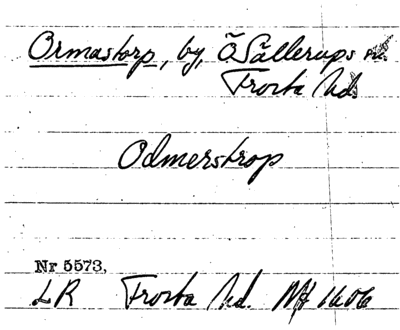 Ormastorp, by, Ö Sallerups sn.
Frosta hd.
Odmerstrop
Nr 5573,
LR Frosta hd. Mf 1606